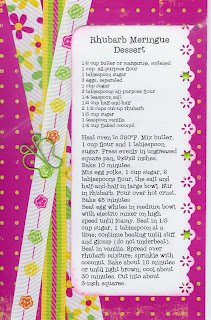 Rhubarb Meringue
Dessert
1/2 cup butter or margarine, softened
1 cup all-purpose flour
1 tablespoon sugar
3 eggs, separated
1 cup sugar
2 tablespoons all-purpose flour
1/4 teaspoon salt
1/2 cup half-and-half
2 1/2 cups cut-up rhubarb
1/3 cup sugar
1 teaspoon vanilla
1/4 cup flaked coconut
Heat oven to 350°F. Mix butter,
1 cup flour and 1 tablespoon
sugar. Press evenly in ungreased
square pan, 9x9x2 inches.
Bake 10 minutes.
Mix egg yolks, 1 cup sugar, 2
tablespoons flour, the salt and
half-and-half in large bowl. Stir
in rhubarb. Pour over hot crust.
Bake 45 minutes
Beat egg whites in medium bowl
with electric mixer on high
speed until foamy. Beat in 1/3
cup sugar, 1 tablespoon at a
time; continue beating until stiff
and glossy (do not underbeat).
Beat in vanilla. Spread over
rhubarb mixture; sprinkle with
coconut. Bake about 10 minutes
or until light brown; cool about
30 minutes. Cut into about
3-inch squares.